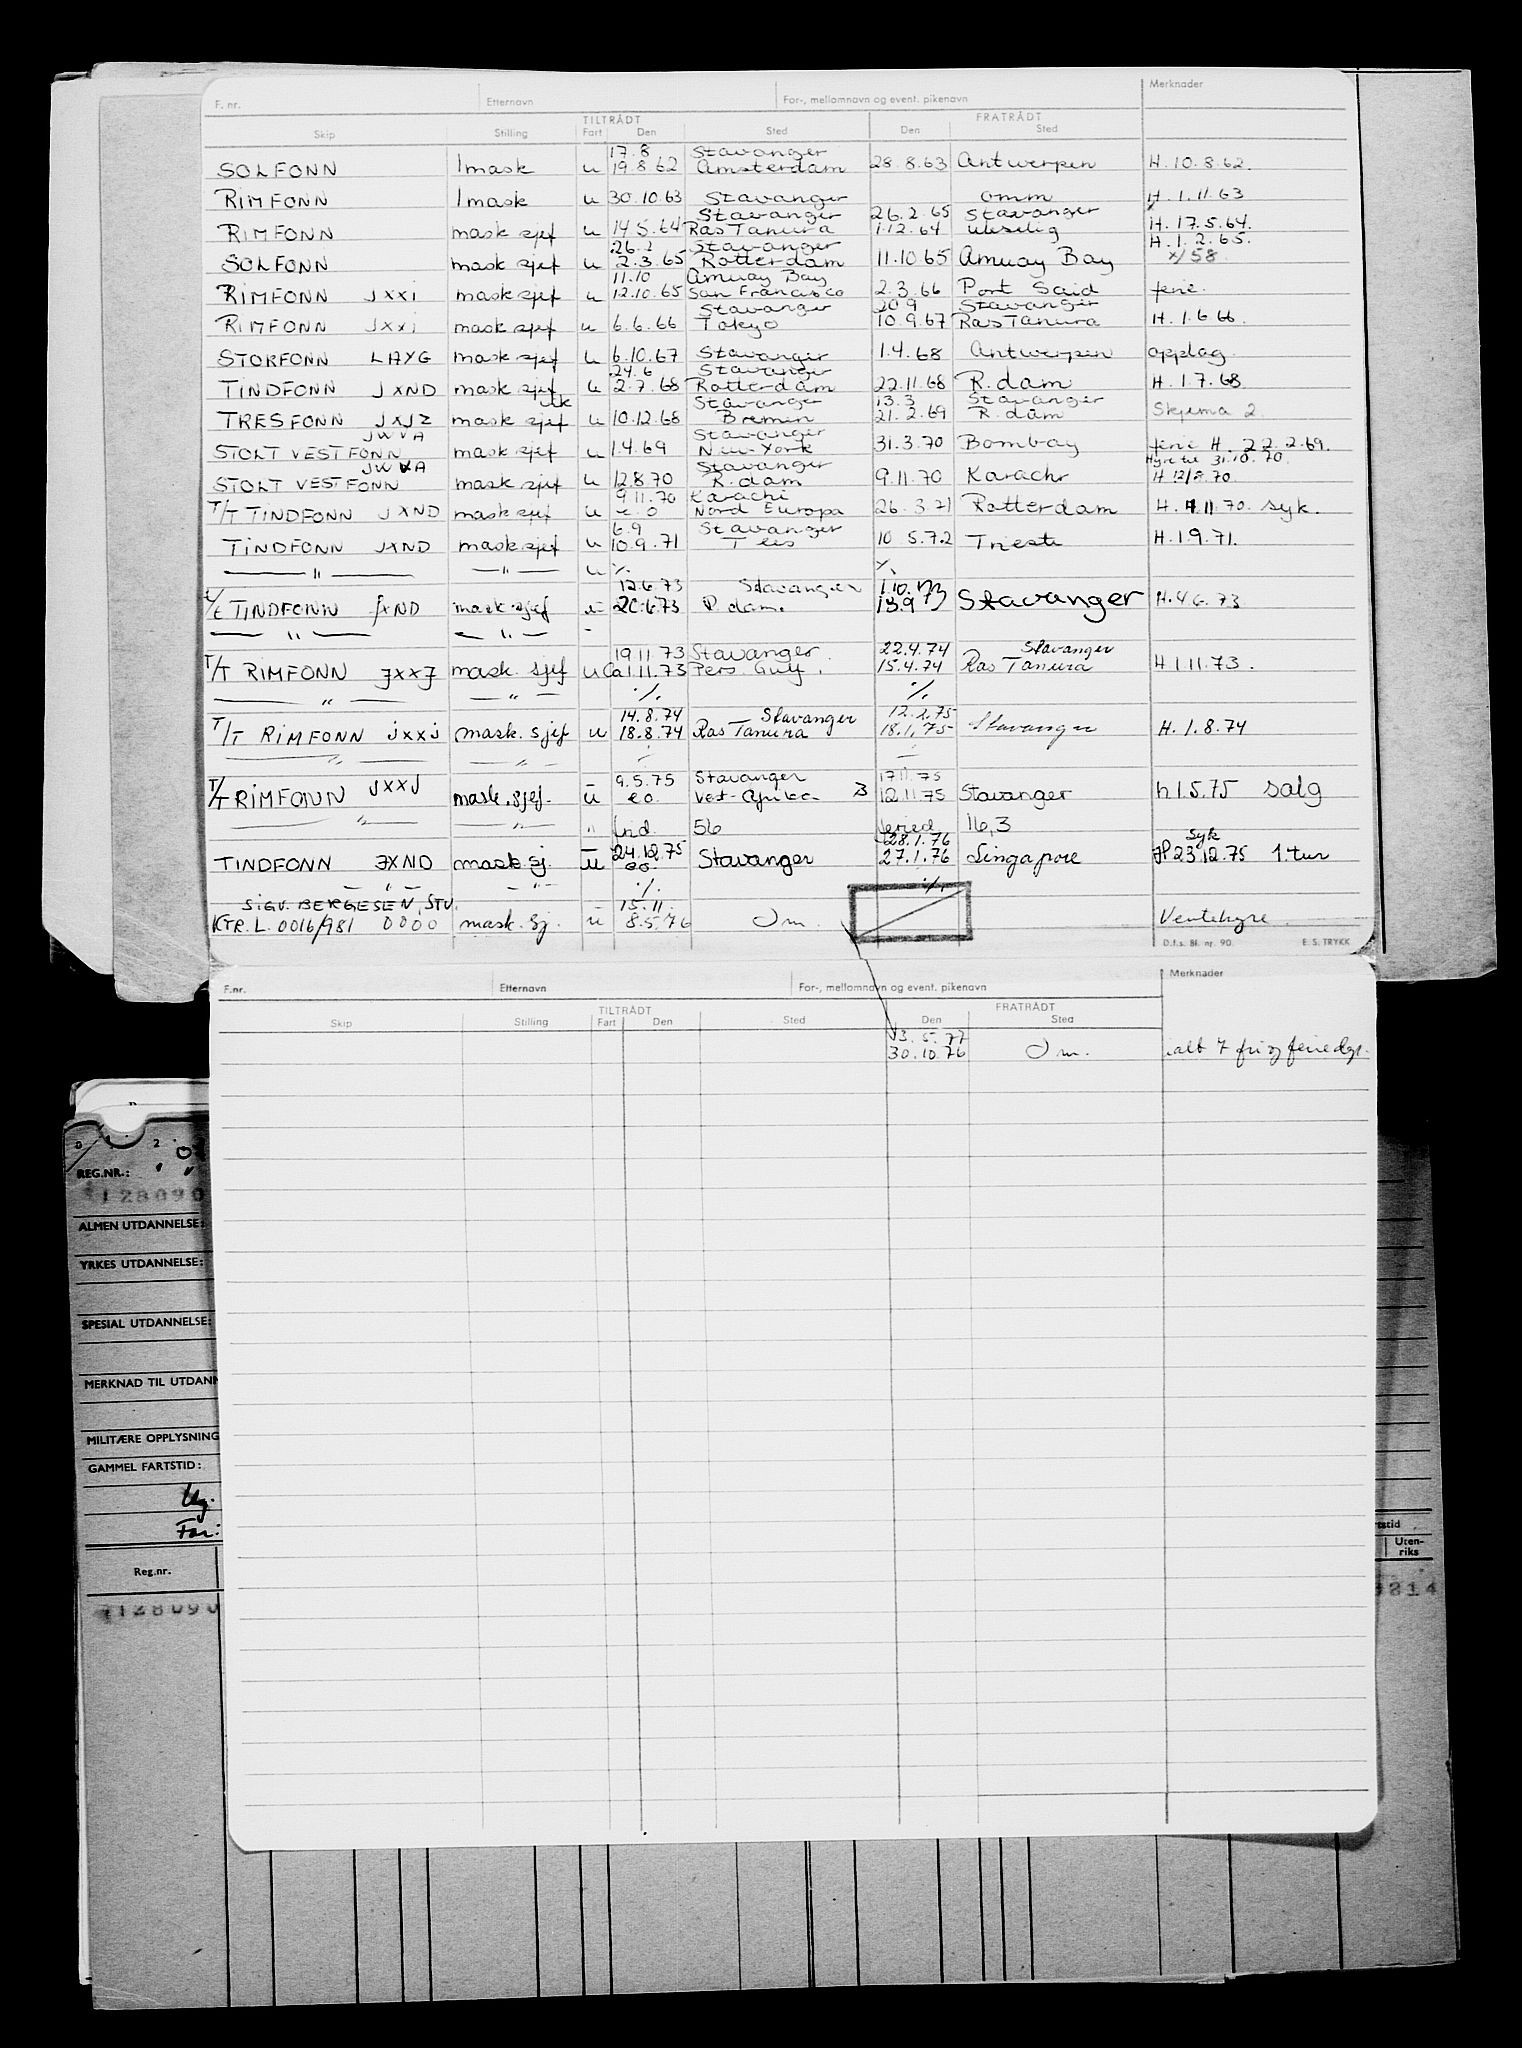 F. nr. Etternavn For-, mellomnavn og event. pikenavn Merknader
TILTRÅDT FRATRÅDT
Skip Stilling Fart Den Sted Den Sted
17.8 Stavanger
SOLFONN 1mask u 19.8.62 Amsterdam 28.8.63 Antwerpen H. 10.8.62.
RIMFONN 1mask u 30.10.63 Stavanger omm H. 1.11.63
Stavanger 26.2.65 Stavanger
RIMFONN mask sjef u 14.5.64 Ras Tanura 1.12.64 H. 17.5.64.
26.2 Stavanger H. 1.2.65.
SOLFONN mask sjef u 2.3.65 Rotterdam 11.10.65 Amuay Bay x/58
11.10 Amuay Bay
RIMFONN JXXI mask sjef u 12.10.65 San Francisco 2.3.66 Port Said ferie.
Stavanger 20.9 Stavanger
RIMFONN JXXI mask sjef u 6.6.66 Tokyo 10.9.67 Ras Tanura H. 1.6.66.
STORFONN LAYG mask sjef u 6.10.67 Stavanger 1.4.68 Antwerpen opplag.
24.6 Stavanger
TINDFONN JXND mask sjef u 2.7.68 Rotterdam 22.11.68 R. dam H. 1.7.68
Stavanger 13.3 Stavanger
TRESFONN JXJZ mask sjef u 10.12.68 Bremen 21.2.69 R. dam Skjema 2.
JWVA Stavanger
STOLT VESTFONN mask sjef u 1.4.69 New-York 31.3.70 Bombay ferie H. 22.2.69.
JWVA Stavanger Hyre til 31.10.70.
STOLT VESTFONN mask sjef u 12.8.70 R. dam 9.11.70 Karachi H 12/8.70.
9.11.70 Karachi
T/T TINDFONN JXND mask sjef u e.o Nord Europa 26.3.71 Rotterdam H. 11.70. syk.
6.9 Stavanger
TINDFONN JXND mask sjef u 10.9.71 Tees 10.5.72 Trieste H. 1.9.71.
— " — — " — u ./. ./.
12.6.73 Stavanger 1.10.73
t/t TINDFONN JXND mask sjef u 20.6.73 R. dam. 13.9.73 Stavanger H. 4.6.73
— " — — " — -
19.11.73 Stavanger. 22.4.74 Stavanger
T/T RIMFONN JXXJ mask. sjef u Ca 1.11.73 Pers. Gulf. 15.4.74 Ras Tanura H 1.11.73.
— " — — " — ./. ./.
14.8.74 Stavanger 12.2.75
T/T RIMFONN JXXJ mask. sjef u 18.8.74 Ras Tanura 18.1.75 Stavanger H. 1.8.74
— " — — " —
9.5.75 Stavanger 17.11.75
T/T RIMFONN JXXJ mask. sjef. u e.o. Vest-Afrika B 12.11.75 Stavanger h 1.5.75 salg
— " — — " — " 56 16,3
24.12.75 28.1.76 syk
TINDFONN JXND mask. sj. u e.o. Stavanger 27.1.76 Singapore H 23.12.75 1 tur
— " — — " — ./. ./.
SIGV. BERGESEN, STV. 15.11.
KTR. L. 0016/981 0000 mask. sj. u 8.5.76 Om. Ventehyre
D.f.s. Bl. nr. 90. E. S. TRYKK
F.nr. Etternavn For-, mellomnavn og event. pikenavn Merknader
TILTRÅDT FRATRÅDT
Skip Stilling Fart Den Sted Den Sted
13.5.77
30.10.76 Om. ialt 7 fri og feriedgr.
REG.NR.:
128090
ALMEN UTDANNELSE:
YRKES UTDANNELSE:
SPESIAL UTDANNELSE:
MERKNAD TIL UTDANN
MILITÆRE OPPLYSNING
GAMMEL FARTSTID:
Far:
Reg.nr. Uten-riks
128090 3214